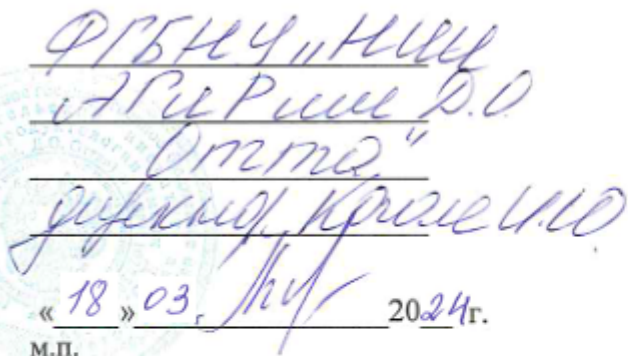 ФГБНУ „НИИ
АГиР им. Д.О
Отта"
директор Коган И.Ю
« 18 » 03. 2024г.
м.п.